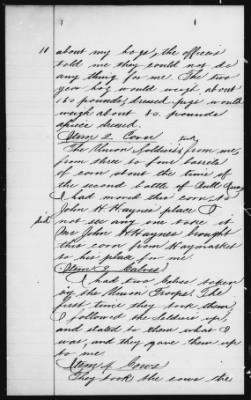 11 about my hogs, the officers
told me they could not do
any thing for me. The two
year hog would weigh about
150 pounds, dressed pigs would
weigh about 80 pounds
apiece dressed.
Item 2 Corn
The Union Soldiers took from me,
from three to four barrels
of corn about the time of
the second battle of Bull Run,
I had moved this corn to
John H Haynes place I
did not see any one take it
One John H Haynes brought
this corn from Haymarket
to his place for me.
Item 3 Calves
I had two Calves taken
by the Union Troops. The
first time they took them,
I followed the Soldiers up,
and stated to them what I
was, and they gave them up
to me.
Item 4 Cows
They took the cows the